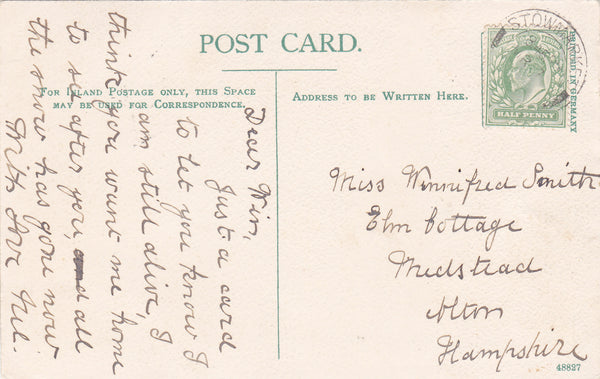 POST CARD.
FOR INLAND POSTAGE ONLY, THIS SPACE
MAY BE USED FOR CORRESPONDENCE.
ADDRESS TO BE WRITTEN HERE.
Dear Win,
Just a card
to let you know I
am still alive, I
think you want me home
to see after you, and all
the snow has gone now
With Love
HALF PENNY
PRINTED IN GERMANY
Miss Winnifred Smith
Elm Cottage
Medstead
Alton
Hampshire
48827